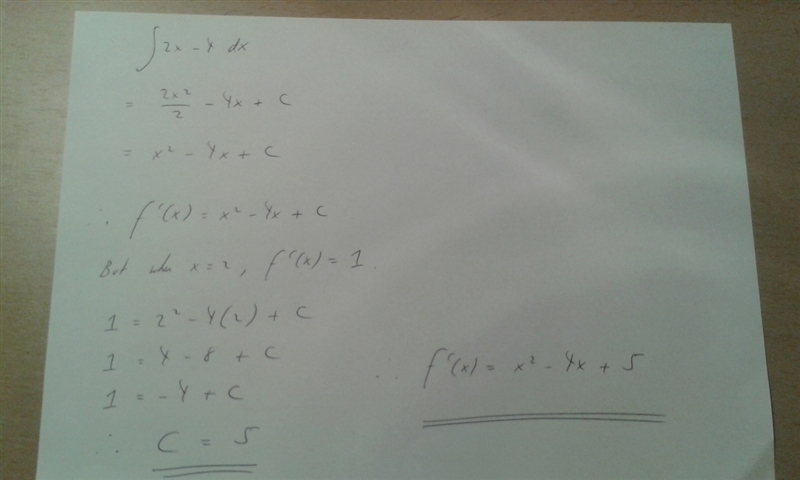 ∫ 2x - 4 dx
= 2x²/2 - 4x + C
= x² - 4x + C
∴ f'(x) = x² - 4x + C
But when x = 2, f'(x) = 1.
1 = 2² - 4(2) + C
1 = 4 - 8 + C
1 = -4 + C
∴ C = 5
∴ f'(x) = x² - 4x + 5